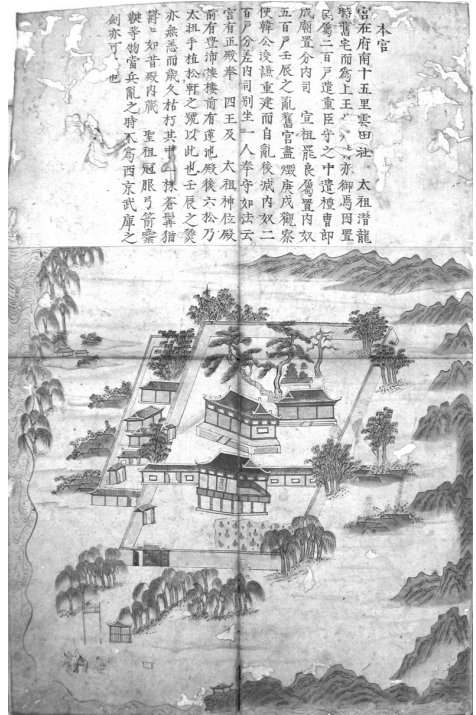 本宮
宮在府南十五里雲田社 太祖潛龍
時舊宅而爲上王 時亦御焉因置
民屬二百戶遣重臣守之中遣檀曹郎
成廟置分內司 宣祖罷良屬置內奴
五百戶壬辰之亂舊宮盡燬庚戌觀察
使韓公浚謙重建而自亂後減內奴二
百戶分差內司別坐一人奉守如法云
宮有正殿奉 四王及 太祖神位殿
前有豊沛樓樓前有蓮池殿後六松乃
太祖手植松軒之號以此也壬辰之燹
亦無恙而歲久枯朽其中 株蒼髯猶
如昔殿內藏 聖祖冠服弓箭櫜
鞬等物當兵亂之時不爲西京武庫之
劍亦可 也